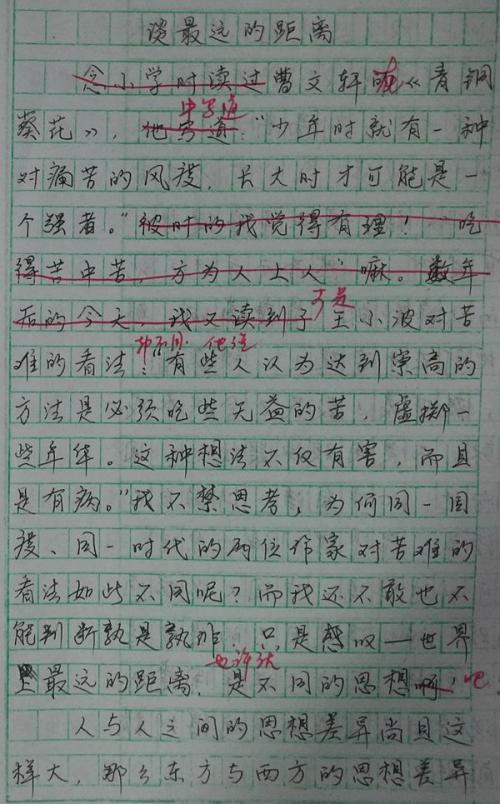 谈最远的距离
念小学时读过曹文轩的《青铜
中写道
葵花》，他写道："少年时就有一种
对痛苦的风度，长大时才可能是一
个强者。"彼时的我觉得有理！"吃
得苦中苦，方为人上人"嘛。数年
可是
后的今天，我又读到了王小波对苦
却不同 他说
难的看法："有些人认为达到崇高的
方法是必须吃些无益的苦，虚掷一
些年华。这种想法不仅有害，而且
是有病。"我不禁思考，为何同一国
度、同一时代的两位作家对苦难的
看法如此不同呢？而我还不敢也不
能判断孰是孰非，只是感叹—世界
也许就
上最远的距离，是不同的思想啊！吧
人与人之间的思想差异尚且这
样大，那么东方与西方的思想差异